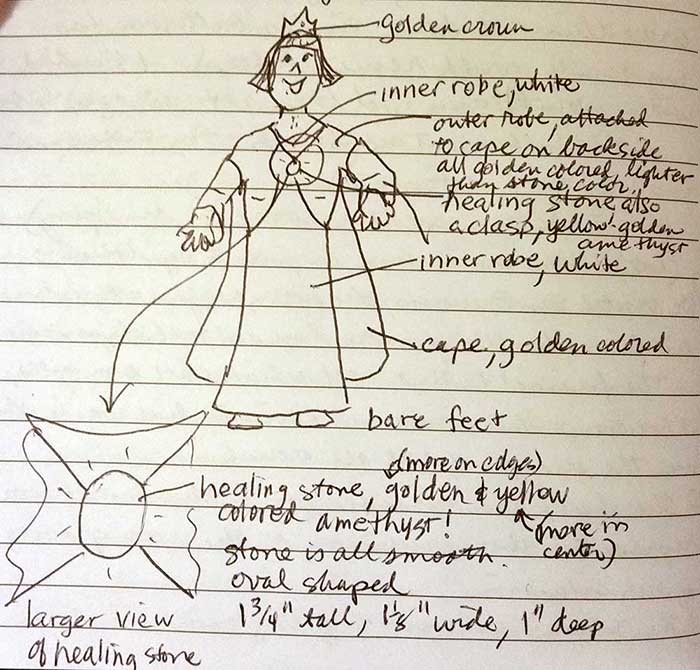 golden crown
inner robe, white
outer robe, attached
to cape on backside
all golden colored, lighter
than stone color.
healing stone also
a clasp, yellow-golden
amethyst
inner robe, white
cape, golden colored
bare feet
(more on edges)
healing stone, golden & yellow
colored amethyst!
(more in
center)
stone is all smooth.
oval shaped
1 3/4" tall, 1 1/8" wide, 1" deep
larger view
of healing stone